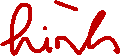 hình